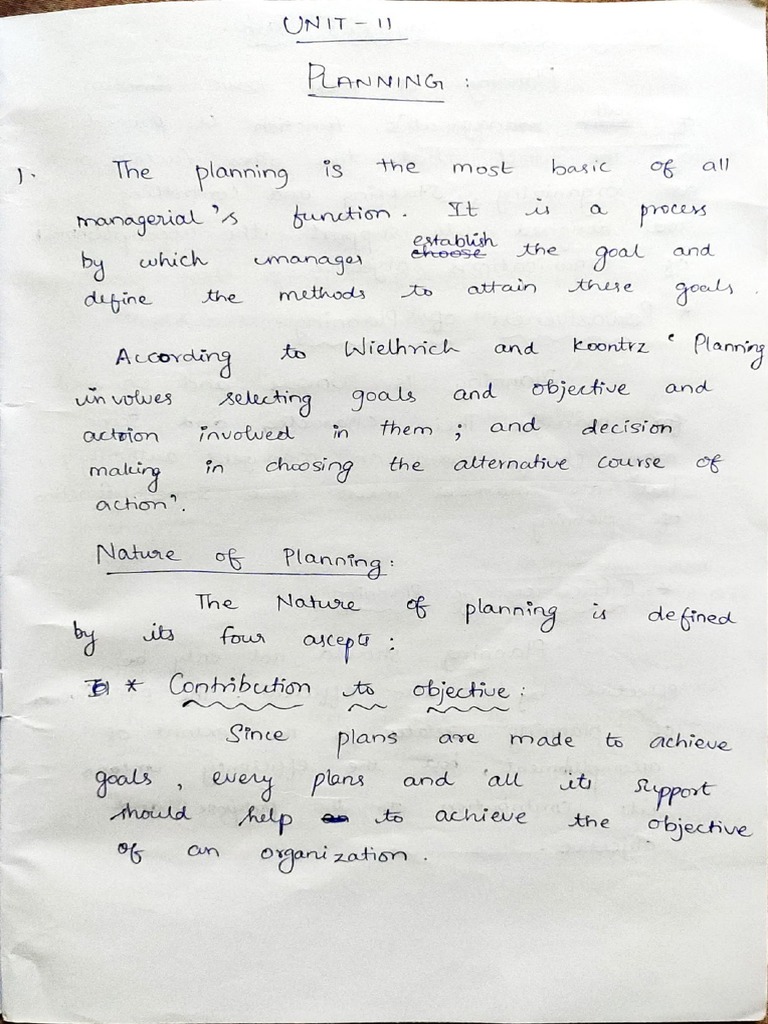 UNIT - II
PLANNING :
1. The planning is the most basic of all
managerial's function. It is a process
by which manager establish choose the goal and
define the methods to attain these goals.
According to Wielhrich and koontrz ' Planning
involves selecting goals and objective and
actoion involved in them ; and decision
making in choosing the alternative course of
action'.
Nature of Planning :
The Nature of planning is defined
by its four ascepts :
* Contribution to objective :
Since plans are made to achieve
goals , every plans and all its support
should help to achieve the objective
of an organization .